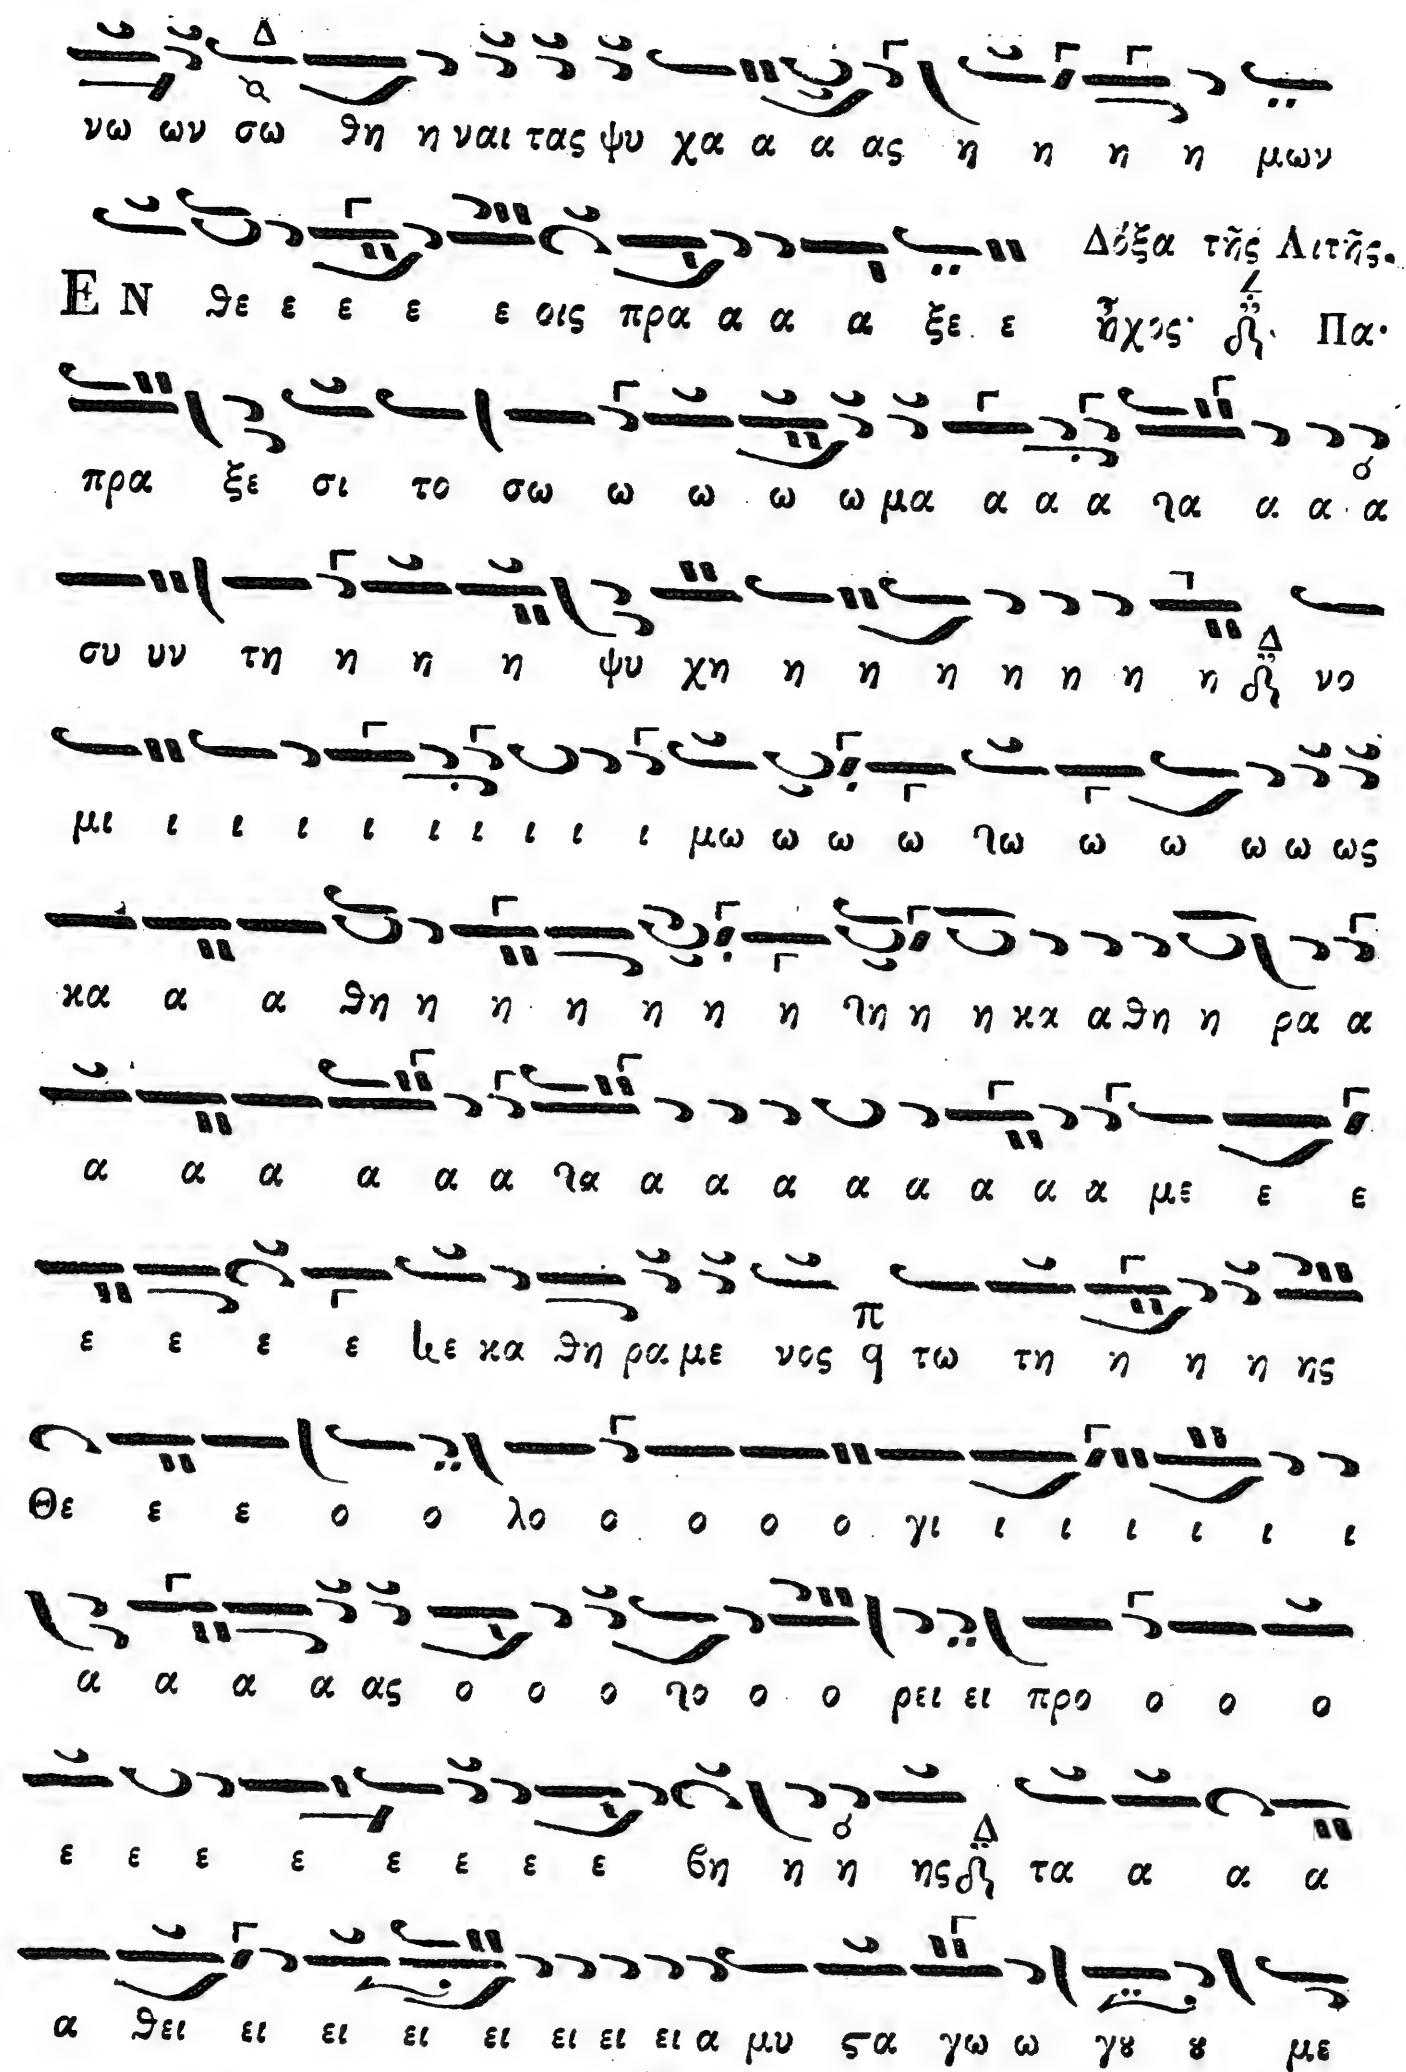 νω ων σω θη η ναι τας ψυ χα α α ας η η η η μων
Δόξα τῆς Λιτῆς.
ΕΝ θε ε ε ε ε οις πρα α α α ξε ε ἦχος Πα·
πρα ξε σι το σω ω ω ω ω μα α α α τα α α α
συ υν τη η η η ψυ χη η η η η η η η Δ νο
μι ι ι ι ι ι ι ι ι ι μω ω ω ω τω ω ω ω ω ως
κα α α θη η η η η η η τη η η κα α θη η ρα α
α α α α α α τα α α α α α α α α με ε ε
ε ε ε ε κε κα θη ρα με νος π q τω τη η η η ης
Θε ε ε ο ο λο ο ο ο ο γι ι ι ι ι ι ι
α α α α ας ο ο ο το ο ο ρει ει προ ο ο ο
ε ε ε ε ε ε ε ε βη η η ης Δ τα α α α
α θει ει ει ει ει ει ει ει α μυ ϛα γω ω γȣ ȣ με